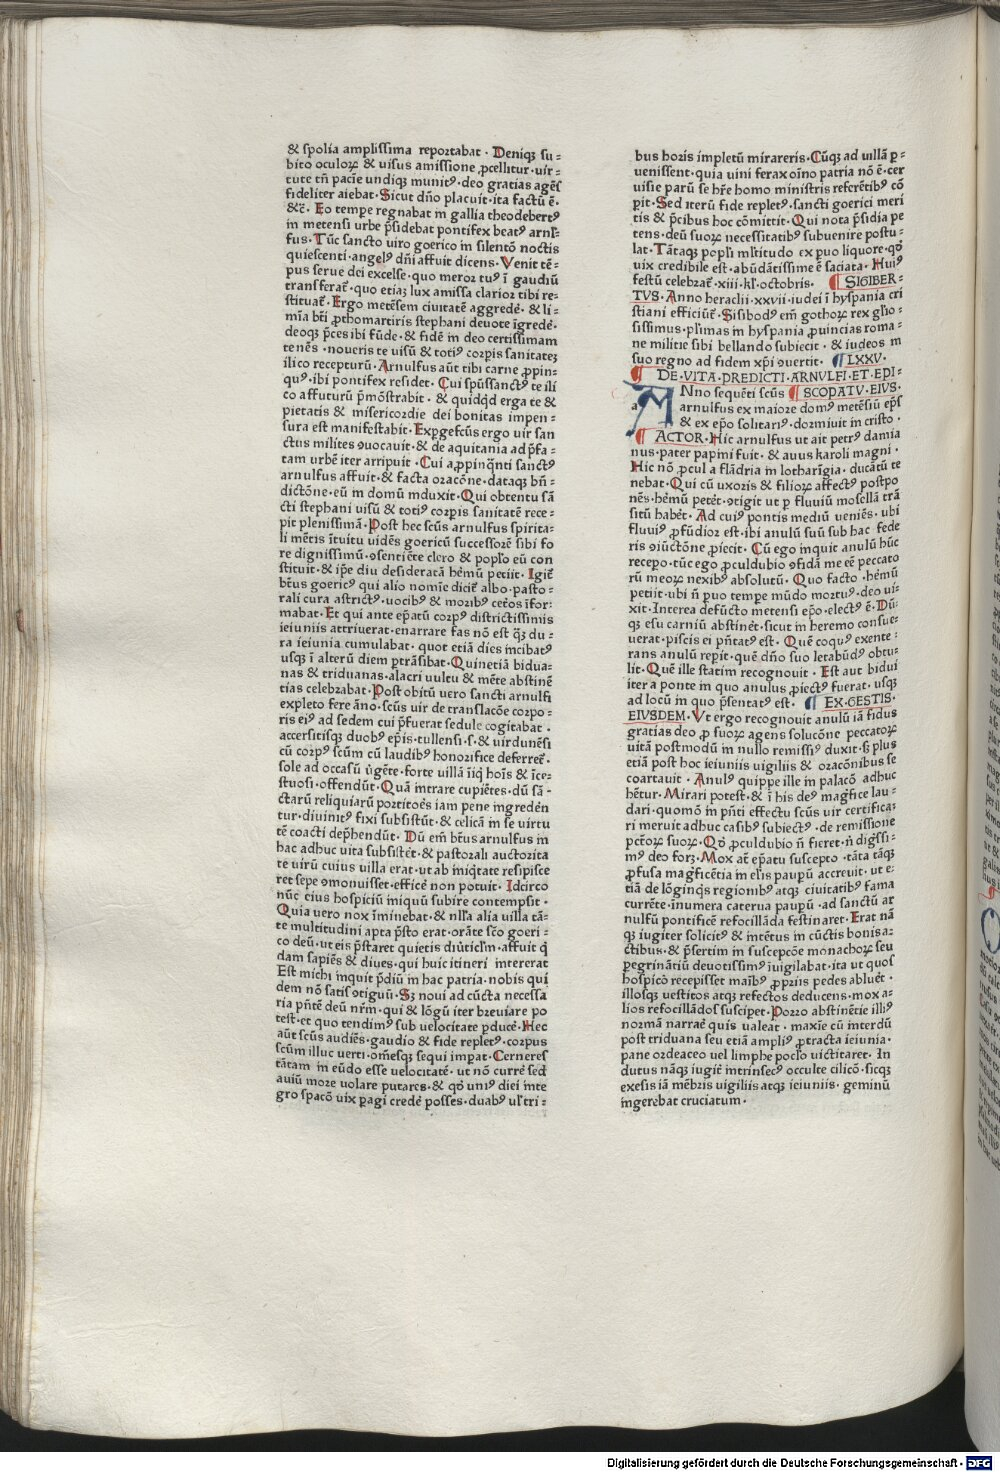 & spolia amplissima reportabat · Deniqꝫ su=
bito oculoꝝ & uisus amissione ꝓcellitur · uir=
tute tñ pacie undiqꝫ munitꝰ · deo gratias agēs
fideliter aiebat · Sicut dño placuit · ita factū ē ·
&c̄ · Eo tempe regnabat in gallia theodebertꝰ
in metensi urbe p̄sidebat pontifex beatꝰ arnl=
fus · Tūc sancto uiro goerico in silentō noctis
quiescenti · angelꝰ dñi affuit dicens · Venit tē=
pus serue dei excelse · quo meror tuꝰ ī gaudiū
transferat᷑ · quo etiaꝫ lux amissa clarior tibi re=
stituat᷑ · Ergo metēsem ciuitatē aggrede᷑ · & li=
mīa bt̄i ꝓthomartiris stephani deuote īgrede᷑ ·
deoqꝫ p̄ces ibi fūde · & fidē in deo certissimam
tenēs · noueris te uisū & totiꝰ corpis sanitateꝫ
ilico recepturū · Arnulfus aūt tibi carne ꝓpin=
quꝰ · ibi pontifex residet · Cui sp̄ussanctꝰ te ili
co affuturū p̄mōstrabit · & quidq̄d erga te &
pietatis & misericordie dei bonitas impen=
sura est manifestabit · Exꝑgefcūs ergo uir san
ctus milites ꝯuocauit · & de aquitania ad p̄fa=
tam urbē iter arripuit · Cui aꝓpinq̄nti sanctꝰ
arnulfus affuit · & facta oracōne · dataqꝫ bñ=
dictōne · eū in domū induxit · Qui obtentu sā
cti stephani uisū & totiꝰ corpis sanitatē rece=
pit plenissimā · Post hec scūs arnulfus spirita=
li mētis ītuitu uidēs goericū successorē sibi fo
re dignissimū · ꝯsentiēte clero & poplo eū con
stituit · & ipe diu desideratā hēmū petiit · Igit᷑
bt̄us goericꝰ qui alio nomīe dicit᷑ albo · pasto=
rali cura astrictꝰ · uocibꝰ & moribꝰ cet̄os īfor=
mabat · Et qui ante ep̄atū corpꝰ districtissimis
ieiuniis attriuerat · enarrare fas nō est q̄ꝫ du=
ra ieiunia cumulabat · quot etiā dies incibatꝰ
usqꝫ ī alterū diem ptrāsibat · Quinetiā bidua=
nas & triduanas · alacri uultu & mēte abstinē
tias celebrabat · Post obitū uero sancti arnulfi
expleto fere āno · scūs uir de translacōe corpo=
ris eiꝰ ad sedem cui p̄fuerat sedule cogitabat ·
accersitisqꝫ duobꝰ ep̄is · tullensi · s · & uirdunēsi
cū corpꝰ scūm cū laudibꝰ honorifice deferret᷑ ·
sole ad occasū ūgēte · forte uillā īiq̄ hoīs & īce=
stuosi · offendūt · Quā intrare cupiētes · dū sā =
ctarū reliquiarū portitoēs iam pene ingreden
tur · diuinitꝰ fixi subsistūt · & celicā in se uirtu
tē coacti dep̄hendūt · Dū em̄ bt̄us arnulfus in
hac adhuc uita subsistet᷑ · & pastorali auctorita
te uirū cuius uilla erat · ut ab iniq̄tate resipisce
ret sepe ꝯmonuisset · efficere non potuit · Idcirco
nūc eius hospiciū iniquū subire contempsit ·
Quia uero nox īminebat · & nlła alia uilla tā=
te multitudini apta p̄sto erat · orāte scō goeri=
co deū · ut eis p̄staret quietis diūticłm · affuit q̄
dam sapiēs & diues · qui huic itineri intererat
Est michi inquit p̄diū in hac patria · nobis qui
dem nō satis ꝯtiguū · Sꝫ noui ad cūcta necessa
ria pn̄tē deū nr̄m · qui & lōgū iter breuiare po
test · et quo tendimꝰ sub uelocitate pduce᷑ · Hec
aūt scūs audiēs · gaudio & fide repletꝰ · corpus
scūm illuc uerti · om̄esqꝫ sequi impat · Cerneres
tātam in eūdo esse uelocitatē · ut nō curre᷑ sed
auiū more uolare putares · & qđ uniꝰ diei inte
gro spacō uix ꝑagi crede᷑ posses · duabꝰ uł tri=
bus horis impletū mirareris · Cūqꝫ ad uillā ꝑ=
uenissent · quia uini ferax oīno patria nō ē · cer
uisie parū se hr̄e homo ministris referētibꝰ cō
ꝑit · Sed iterū fide repletꝰ · sancti goerici meri
tis & p̄cibus hoc cōmittit · Qui nota p̄sidia pe
tens · deū suoꝝ necessitatibꝰ subuenire postu=
lat · Tātaqꝫ popłi młtitudo ex puo liquore · qđ
uix credibile est · abūdātissime ē saciata · Huiꝰ
festū celebrat᷑ · xiii · kł · octobris · ¶ SIGIBER=
TVS · Anno heraclii · xxvii · iudei ī hyspania cri
stiani efficiūt᷑ · Sisibodꝰ em̄ gothoꝝ rex głio=
sissimus · płimas in hyspania ꝓuincias roma=
ne militie sibi bellando subiecit · & iudeos in
suo regno ad fidem xp̄i ꝯuertit · ¶ LXXV ·
¶ DE · VITA · PREDICTI · ARNVLFI · ET · EPI=
ANno sequēti scūs ¶ SCOPATV · EIVS ·
arnulfus ex maiore domꝰ metēsiū ep̄s
& ex ep̄o solitariꝰ · dormiuit in cristo ·
¶ ACTOR · Hic arnulfus ut ait petrꝰ damia
nus · pater papini fuit · & auus karoli magni ·
Hic nō ꝓcul a flādria in lotharīgia · ducatū te
nebat · Qui cū uxoris & filioꝝ affectꝰ postpo
nēs · hēmū petēt · ꝯtigit ut ꝑ fluuiū mosellā trā
sitū habēt · Ad cuiꝰ pontis mediū ueniēs · ubi
fluuiꝰ ꝓfūdior est · ibi anulū suū sub hac fede
ris ꝯiūctōne ꝓiecit · Cū ego inquit anulū hūc
recepo · tūc ego ꝓculdubio ꝯfidā me eē peccato
rū meoꝝ nexibꝰ absolutū · Quo facto · hēmū
petiit · ubi ñ puo tempe mūdo mortuꝰ · deo ui=
xit · Interea defūcto metensi ep̄o · electꝰ ē · Dū=
qꝫ esu carniū abstinēt · sicut in heremo consue=
uerat · piscis ei pn̄tatꝰ est · Quē coquꝰ exente=
rans anulū repit · quē dño suo letabūdꝰ obtu=
lit · Quē ille statim recognouit · Est aut bidui
iter a ponte in quo anulus ꝓiectꝰ fuerat · usqꝫ
ad locū in quo p̄sentatꝰ est · ¶ EX · GESTIS ·
EIVSDEM · Vt ergo recognouit anulū iā fidus
gratias deo ꝓ suoꝝ agens solucōne peccatoꝝ
uitā postmodū in nullo remissiꝰ duxit · sꝫ plus
etiā post hoc ieiuniis uigiliis & oracōnibus se
coartauit · Anulꝰ quippe ille in palacō adhuc
hētur · Mirari potest · & ī his deꝰ mag̃fice lau=
dari · quomō in pn̄ti effectu scūs uir certifica=
ri meruit adhuc casibꝰ subiectꝰ · de remissione
pctoꝝ suoꝝ · Qđ ꝓculdubio ñ fieret · ñ dig̃ssi=
mꝰ deo foꝝ · Mox at᷑ ep̄atu suscepto · tāta tāqꝫ
ꝓfusa mag̃ficētia in elīs paupū accreuit · ut e=
tiā de lōginq̄s regionibꝰ atqꝫ ciuitatibꝰ fama
currēte · īnumera caterua paupū · ad sanctū ar
nulfū pontificē refocillāda festinaret · Erat nā
qꝫ iugiter solicitꝰ & intētus in cūctis bonis a=
ctibus · & p̄sertim in suscepcōe monachoꝝ seu
peregrinātiū deuotissimꝰ īuigilabat · ita ut quos
hospicō recepisset maībꝰ ꝓpriis pedes ablue᷑ ·
illosqꝫ uestitos atqꝫ refectos deducens · mox a=
lios refocillādos suscipet · Porro abstinētie illiꝰ
normā narrare quis ualeat · maxīe cū interdū
post triduana seu etiā ampliꝰ ꝓtracta ieiunia ·
pane ordeaceo uel limphe pocło uictitaret · In
dutus nāqꝫ iugit᷑ intrinsecꝰ occulte cilicō · sicqꝫ
exesis iā mēbris uigiliis atqꝫ ieiuniis · geminū
ingerebat cruciatum ·
Digitalisierung gefördert durch die Deutsche Forschungsgemeinschaft - DFG